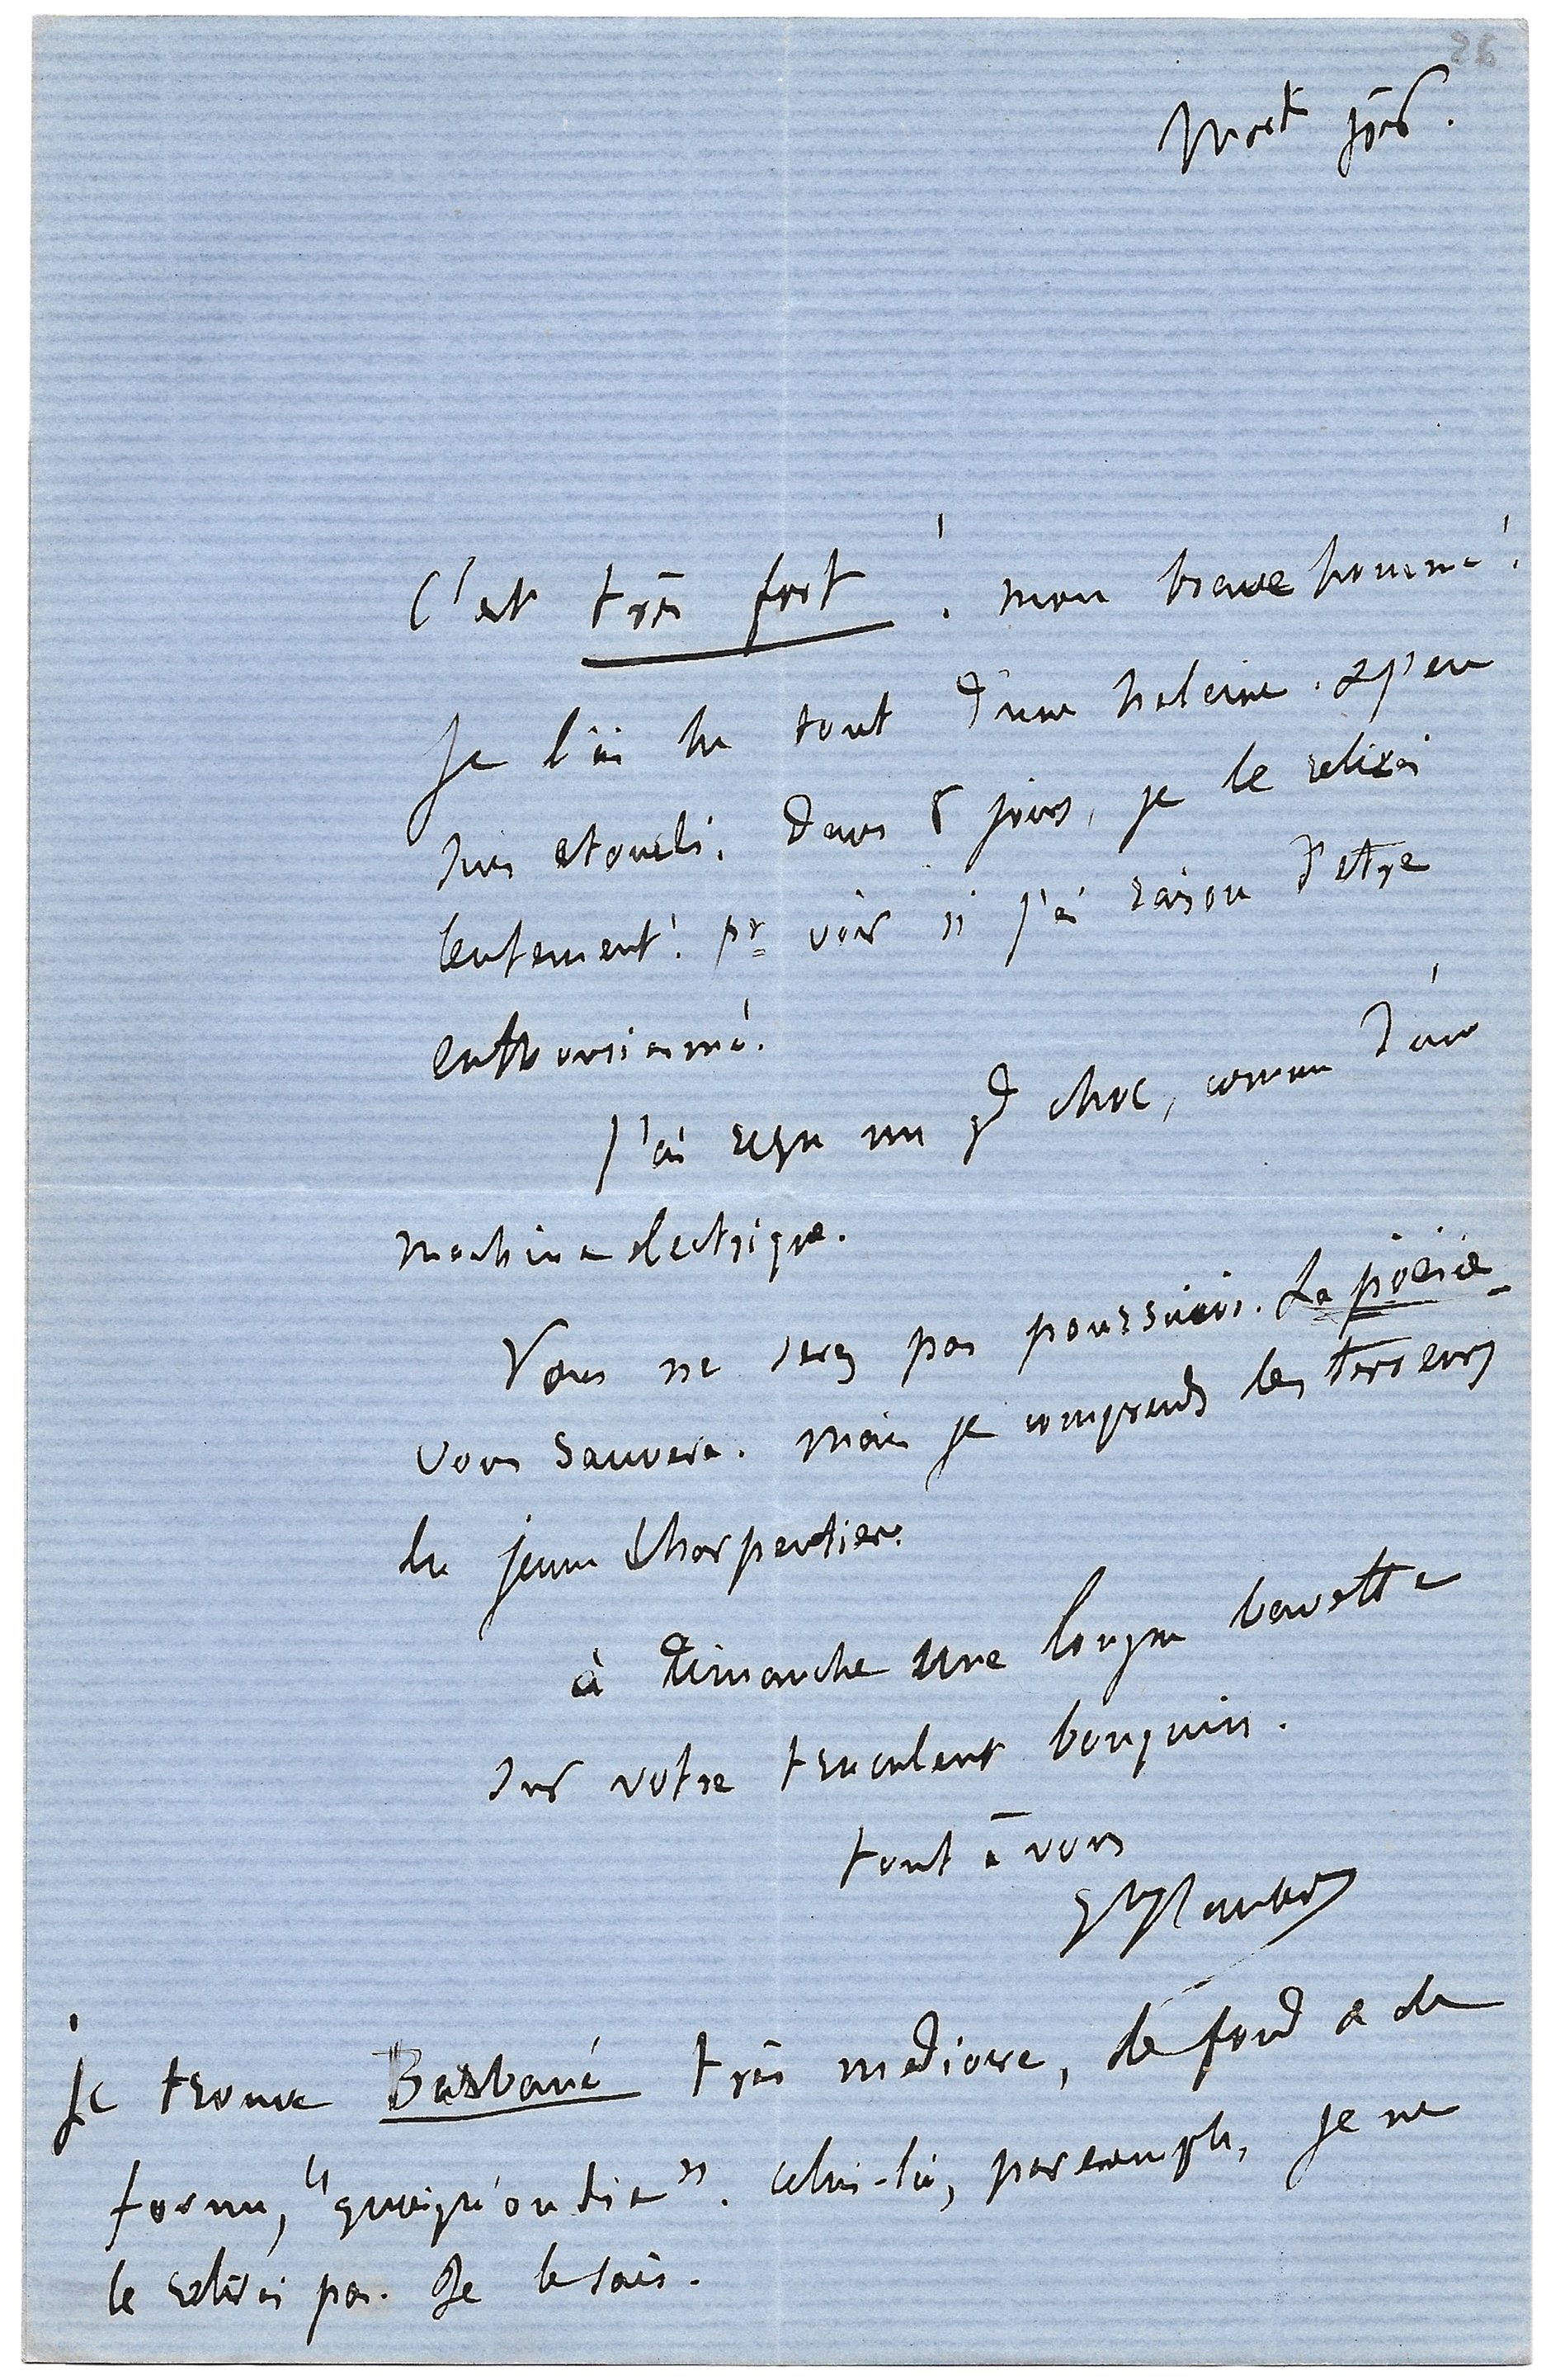 26
C'est très fort ! mon brave homme !
Je l'ai lu tout d'une haleine. & j'en
suis etourdi. Dans 8 jours, je le relirai
lentement ! pr voir si j'ai raison d'etre
enthousiasmé.
J'ai reçu un gd choc, comme d'une
machine electrique.
Vous ne serez pas poursuivi. La poésie
vous sauvera. Mais je comprends les terreurs
du jeune Charpentier.
à Dimanche une longue bavette
sur votre truculent bouquin.
tout à vous
GveFlaubert
Je trouve Barbaré très mediocre, de fond & de
forme, "quoiqu'on die". Celui-là, par exemple, je ne
le relirai pas. Je le sais.